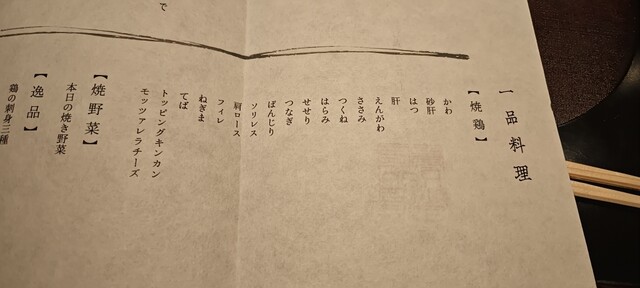 一品料理
【焼鶏】
かわ
砂肝
はつ
肝
えんがわ
ささみ
つくね
はらみ
せせり
つなぎ
ぼんじり
ソリレス
肩ロース
フィレ
ねぎま
てば
トッピングキンカン
モッツァレラチーズ
【焼野菜】
本日の焼き野菜
【逸品】
鶏の刺身三種
で